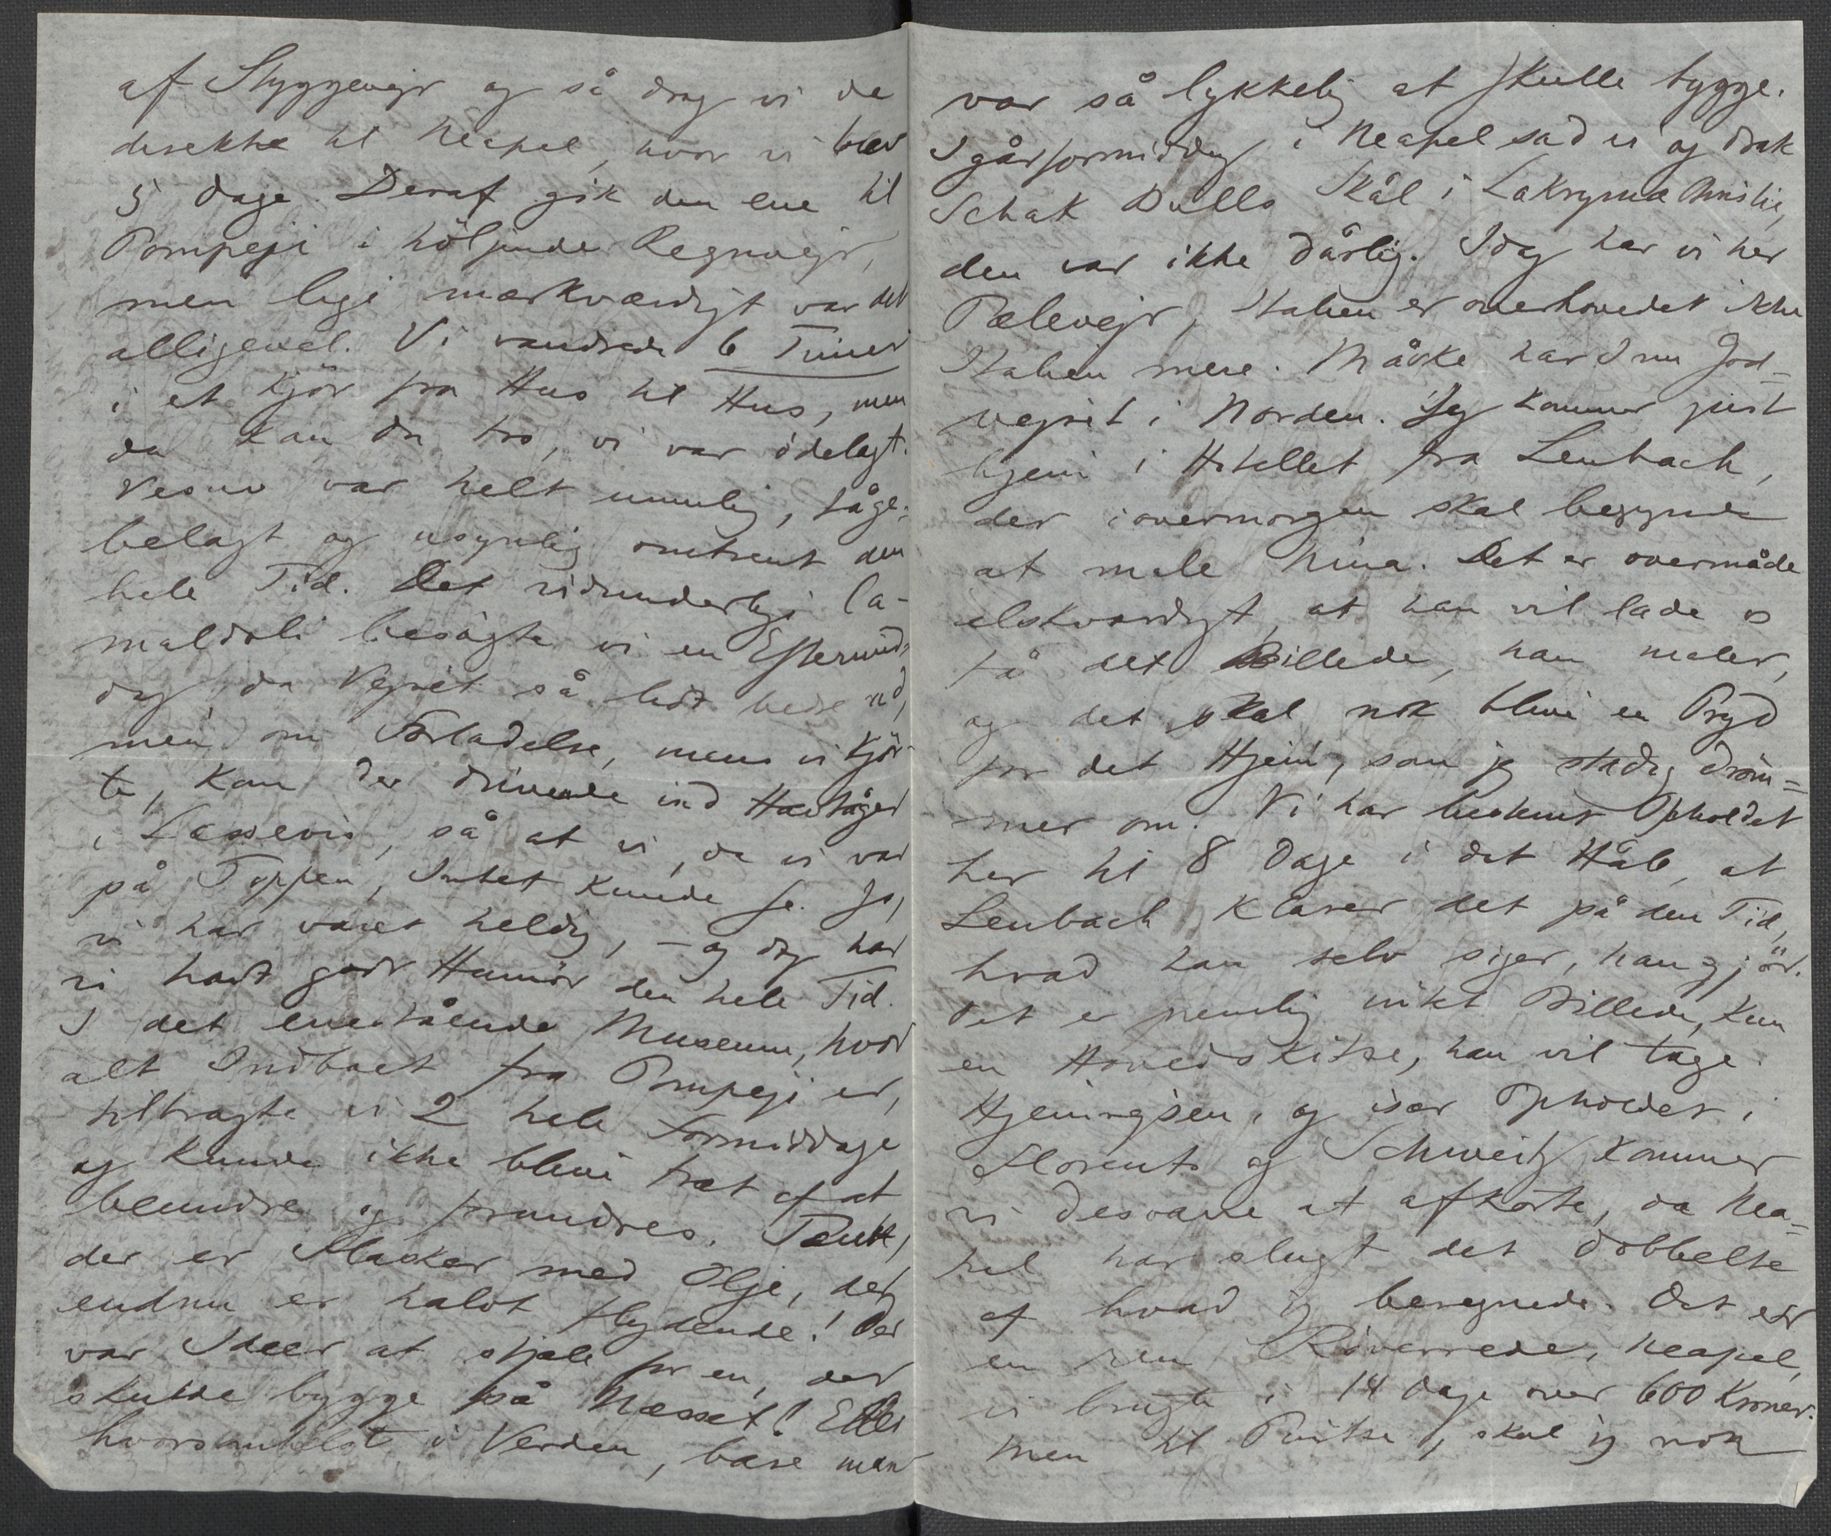 af Styggevejr og så drog vi da
direkte til Neapel, hvor vi blev
5 Dage. Deraf gik den ene til
Pompeji i höljende Regnvejr,
men lige mærkværdigt var det
alligevel. Vi vandrede 6 Timer
i et kjör fra Hus til Hus, men
da kan du tro, vi var ödelagt.
Vesuv var helt umulig, tåge-
belagt og usynlig omtrent den
hele Tid. Det vidunderlige Ca-
maldoli besögte vi en Eftermid-
dag, da Vejret så lidt bedre ud,
men, om Forladelse, mens vi kjör-
te, kom der drivende ind Havtåger
i Læssevis, så at vi, da vi var
på Toppen, Intet kunde se. Jo,
vi har været heldig, – og dog har
vi havt godt Humör den hele Tid.
I det enestående Museum, hvor
alt Indboet fra Pompeji er,
tilbragte vi 2 hele Formiddage
og kunde ikke blive træt af at
beundre og forundres. Tænk,
der er Flasker med Olje, der
endnu er halvt flydende! Der
var Ideer at stjæle for en, der
skulde bygge på Næsset! Eller
hvorsomhelst i Verden, bare man
var så lykkelig at skulle bygge.
Igårformiddag i Neapel sad vi og drak
Schak Bulls Skål i Lakrymæ Kristi,
den var ikke dårlig. Idag har vi her
Pælevejr, Italien er overhovedet ikke
Italien mere. Måske har I nu God-
vejret i Norden. Jeg kommer just
hjem i Hotellet fra Lenbach,
der iovermorgen skal begynde
at male Nina. Det er overmåde
elskværdigt, at han vil lade os
få det Billede, han maler,
og det skal nok blive en Pryd
for det Hjem, som jeg stadig dröm-
mer om. Vi har bestemt Opholdet
her til 8 Dage i det Håb, at
Lenbach klarer det på den Tid,
hvad han selv siger, han gjör.
Det er nemlig intet Billede, kun
en Hovedskitse, han vil tage.
Hjemrejsen, og især Opholdet i
Florents og Schweitz kommer
vi desværre at afkorte, da Nea-
pel har slugt det dobbelte
af hvad jeg beregnede. Det er
en ren Röverrede, Neapel,
vi brugte i 14 Dage over 600 Kroner.
Men til skal jeg nok